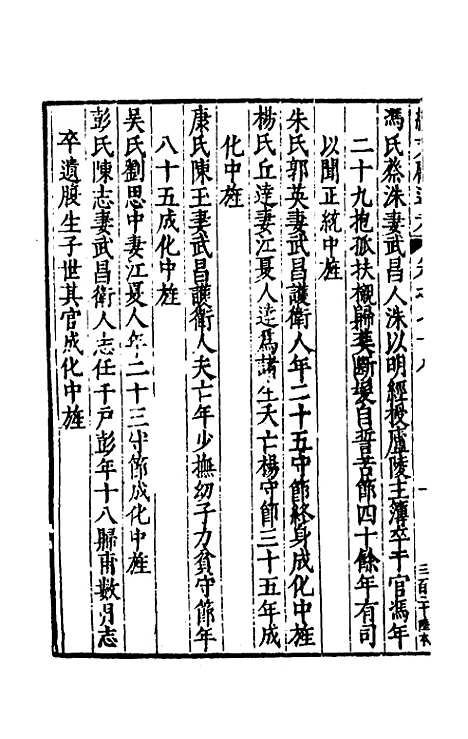 馮氏蔡洙妻武昌人洙以明經授廬陵主簿卒于官馮年
二十九抱孤扶櫬歸葬斷髮自誓苦節四十餘年有司
以聞正統中旌
朱氏郭英妻武昌護衛人年二十五守節終身成化中旌
楊氏丘達妻江夏人達為諸生夭亡楊守節三十五年成
化中旌
康氏陳王妻武昌護衛人夫亡年少撫幼子力貧守節年
八十五成化中旌
吳氏劉思中妻江夏人年二十三守節成化中旌
彭氏陳志妻武昌衛人志任千戶彭年十八歸甫數月志
卒遺腹生子世其官成化中旌